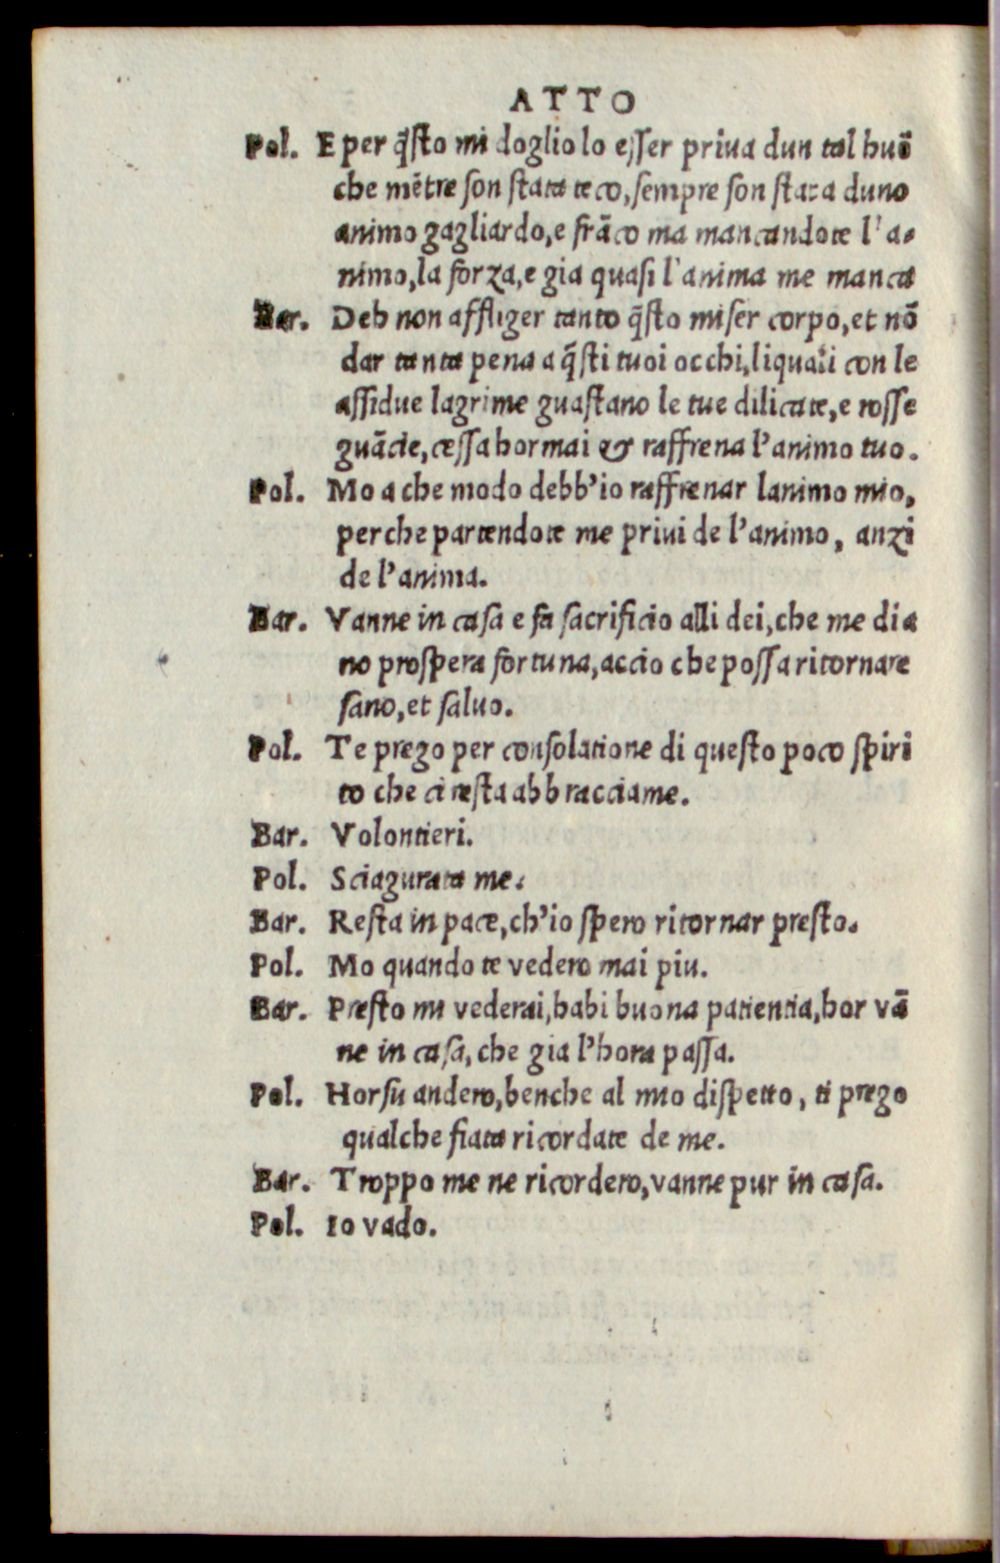 ATTO
Pol. E per q̃sto mi doglio lo esser priua dun tal huõ
che mẽtre son stata teco, sempre son stata duno
animo gagliardo, e frãco ma mancandote l'a-
nimo, la forza, e gia quasi l'anima me manca
Bar. Deh non affliger tanto q̃sto miser corpo, et nõ
dar tanta pena a q̃sti tuoi occhi, liquali con le
assidue lagrime guastano le tue dilicate, e rosse
guãcie, cessa hormai & raffrena l'animo tuo.
Pol. Mo a che modo debb'io raffrenar lanimo mio,
perche partendote me priui de l'animo, anzi
de l'anima.
Bar. Vanne in casa e fa sacrificio alli dei, che me dia
no prospera fortuna, accio che possa ritornare
sano, et saluo.
Pol. Te prego per consolatione di questo poco spiri
to che ci resta abbracciame.
Bar. Volontieri.
Pol. Sciagurata me.
Bar. Resta in pace, ch'io spero ritornar presto.
Pol. Mo quando te vedero mai piu.
Bar. Presto mi vederai, habi buona patientia, hor vã
ne in casa, che gia l'hora passa.
Pol. Horsu andero, benche al mio dispetto, ti prego
qualche fiata ricordate de me.
Bar. Troppo me ne ricordero, vanne pur in casa.
Pol. Io vado.